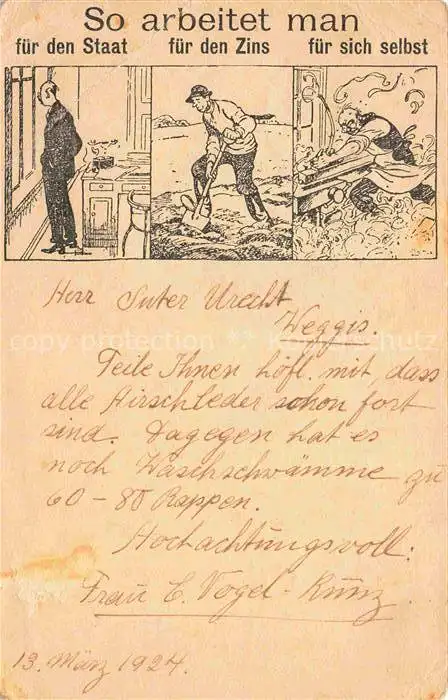 So arbeitet man
für den Staat für den Zins für sich selbst
Herr Suter Urecht
Weggis.
Teile Ihnen höfl. mit, dass
alle Hirschleder schon fort
sind. Dagegen hat es
noch Waschschwämme zu
60 - 80 Rappen.
Hochachtungsvoll:
Frau E. Vogel-Kunz.
13. März 1924.
copy protection Kopierschutz